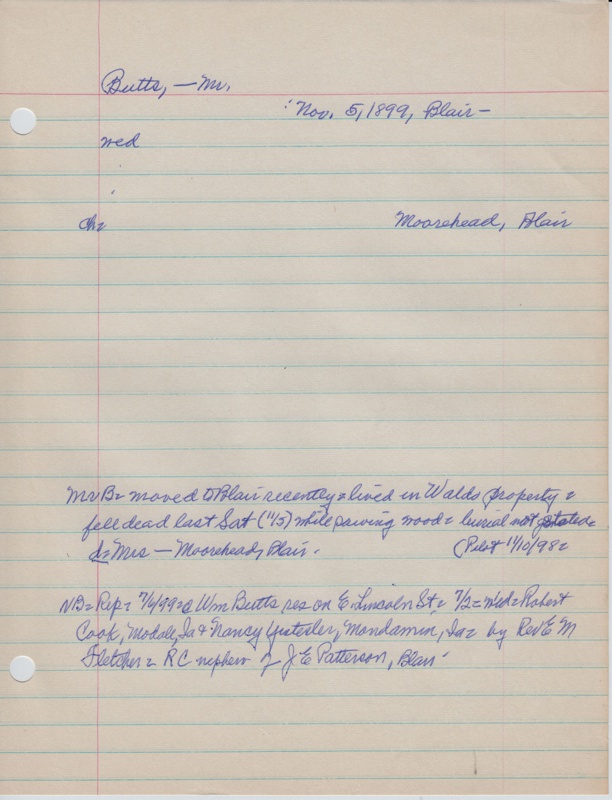 Butts, — Mr.
Nov. 5, 1899, Blair —
wed
ch=
Moorehead, Blair
Mr B= moved to Blair recently = lived in Walds property =
fell dead last Sat (11/5) while sawing wood = burial not stated=
d= Mrs — Moorehead, Blair.
(Pilot 11/10/98=
NB= Rep= 7/6/99= @ Wm Butts res on E. Lincoln St = 7/2 = wed = Robert
Cook, Modale, Ia & Nancy, Mondamin, Ia = by Rev E M
Fletcher = RC nephew of J E Patterson, Blair